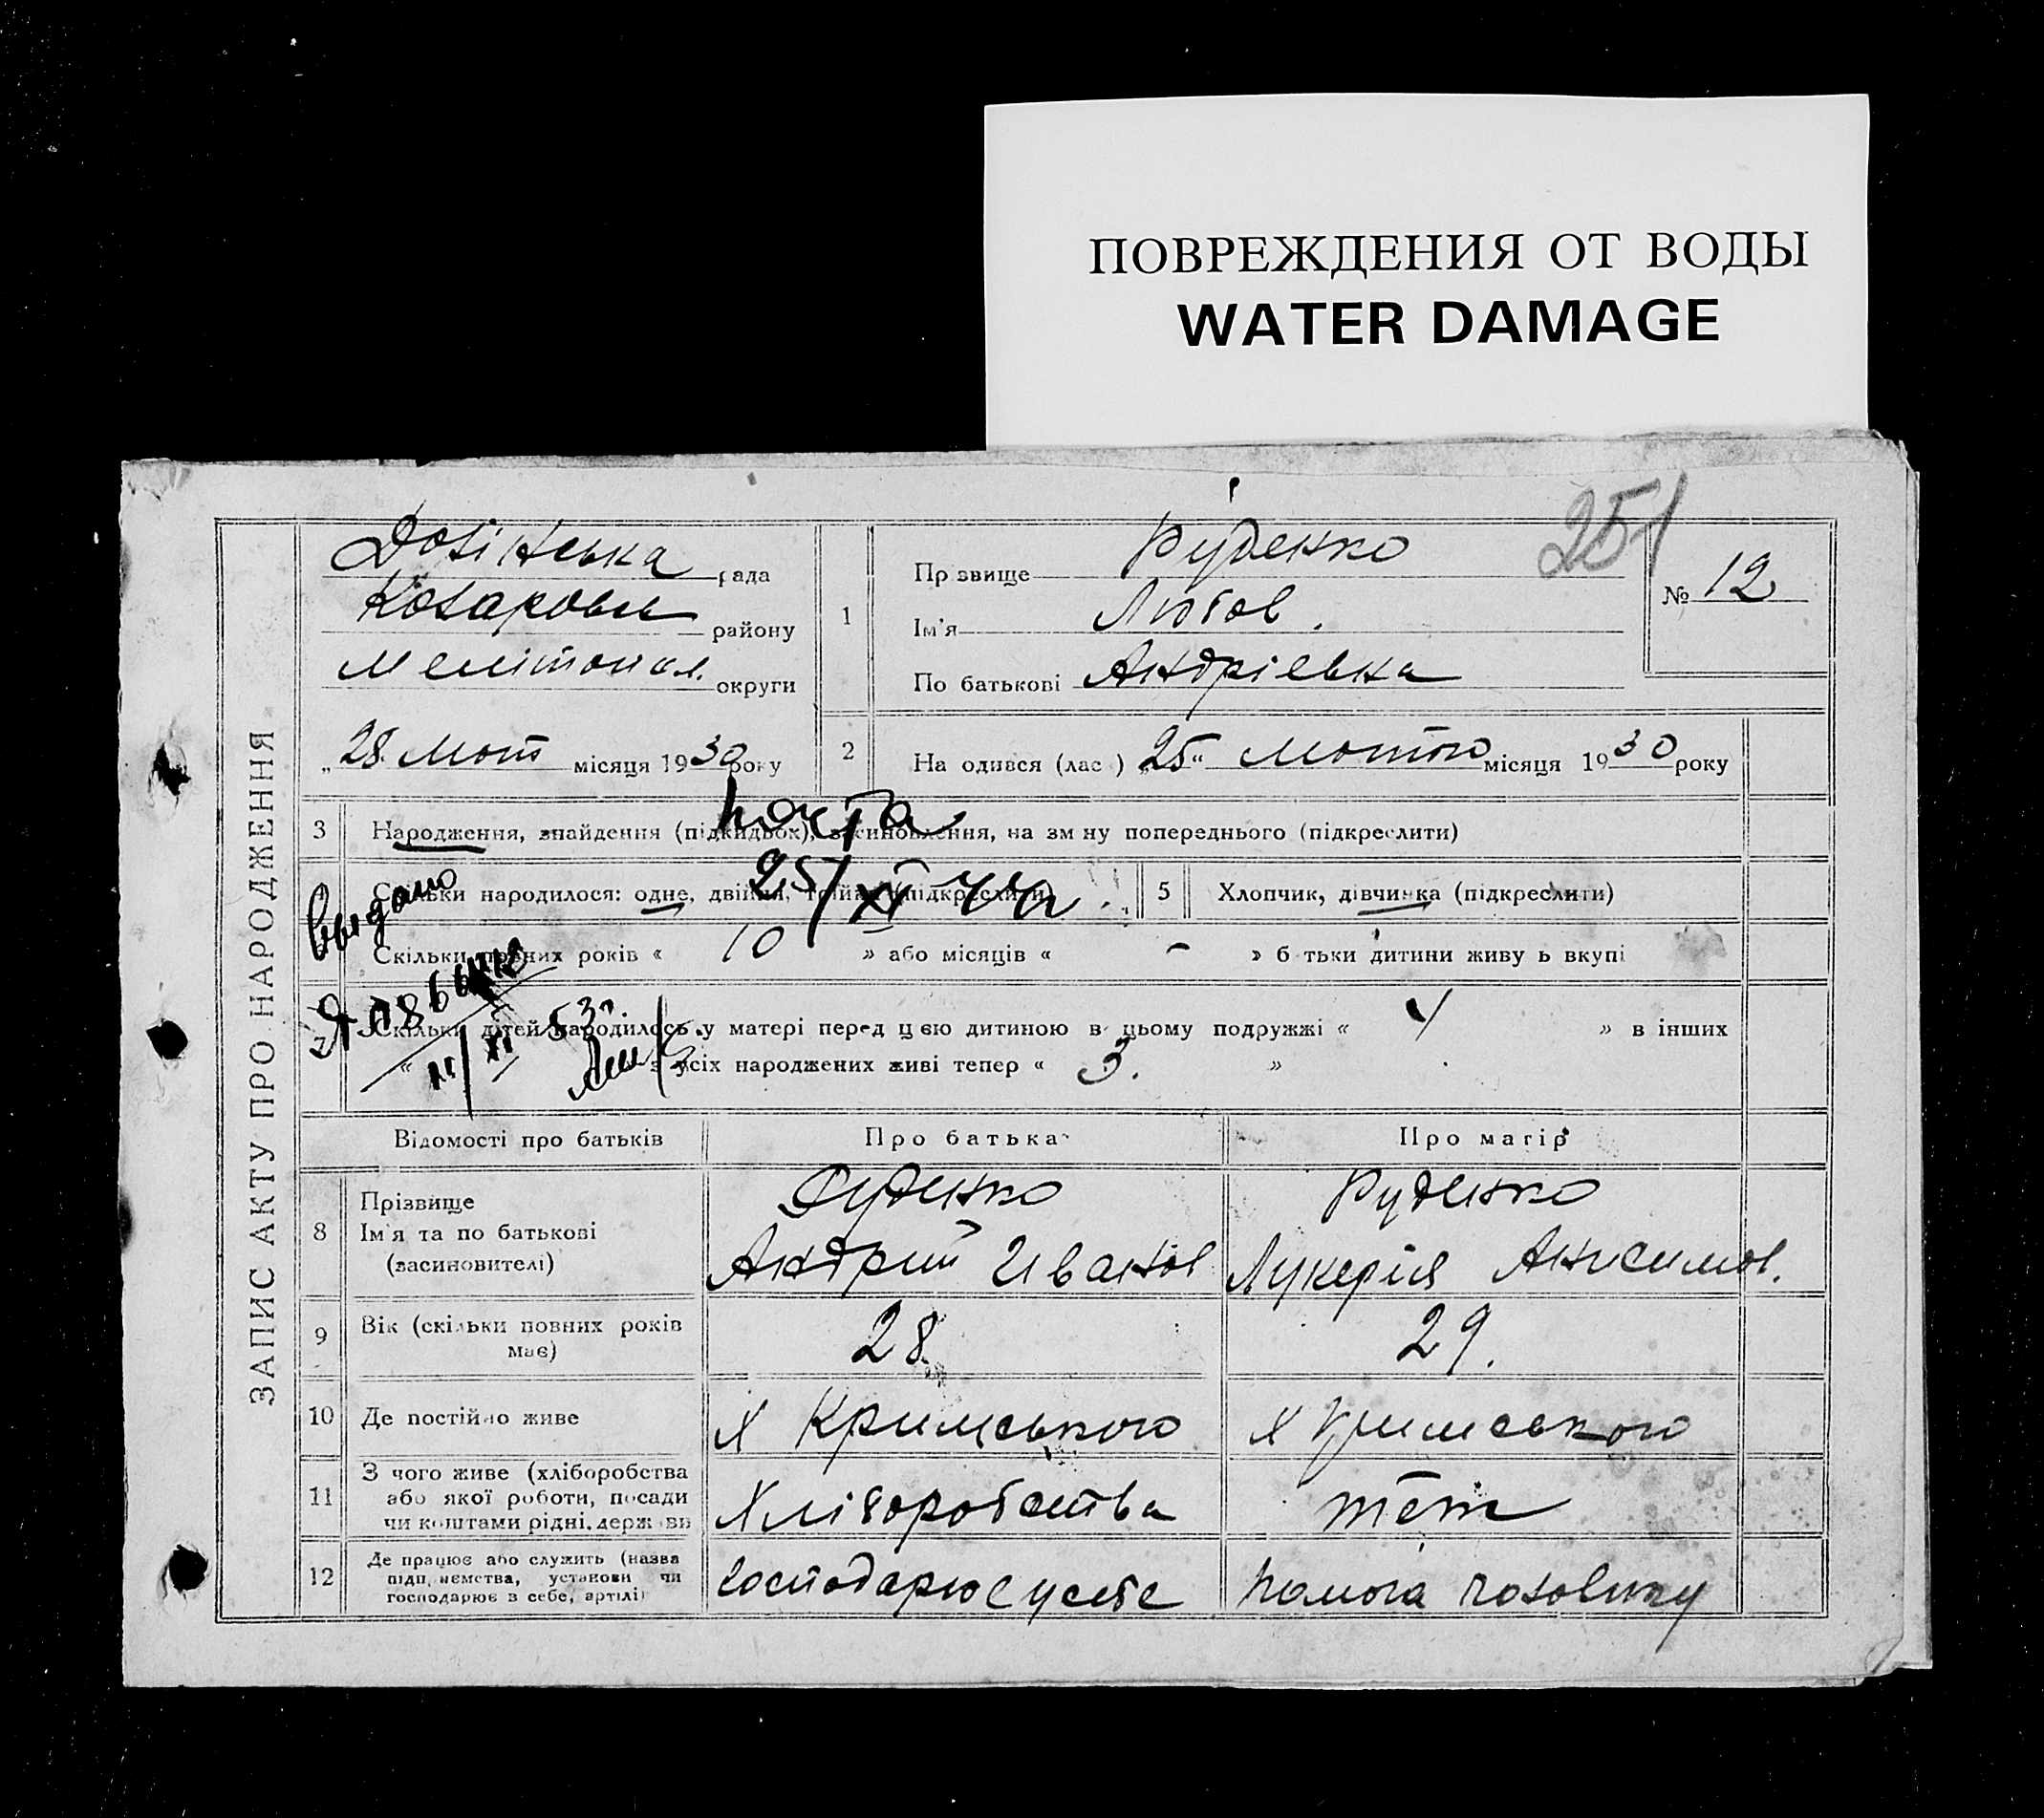 ПОВРЕЖДЕНИЯ ОТ ВОДЫ
WATER DAMAGE
251
ЗАПИС АКТУ ПРО НАРОДЖЕННЯ
рада
району
Мелітопол. округи
„28„ Лют місяця 1930 року
1
Пр звище Руденко
Ім'я Любов.
По батькові Андрієвна
№ 12
2 На одився (лас ) „25“ Лютого місяця 1930 року
пошта
3 Народження, знайдення (підкидьок), засиновлення, на зм ну попереднього (підкреслити)
25/XI 44
Скільки народилося: одне, двійня, трійня (підкреслити)
5 Хлопчик, дівчинка (підкреслити)
Выдано
Скільки повних років « 10 » або місяців « – » б тьки дитини живу ь вкупі
7 Скільки дітей народилось у матері перед цією дитиною в цьому подружжі « 4 » в інших
« з усіх народжених живі тепер « 3. »
11/XI 53г.
Відомості про батьків
Про батька
Про матір
8 Прізвище
Ім'я та по батькові
(засиновителі)
Руденко
Андрий Иванов
Руденко
Лукерія Анисимов.
9 Вік (скільки повних років має)
28
29.
10 Де постійно живе
х Кримського
х Кримського
11 З чого живе (хліборобства
або якої роботи, посади
чи коштами рідні, держ ви
Хліборобства
теж
12 Де працює або служить (назва
підп, иємства, установи чи
господарює в себе, артілі)
господарює у себе